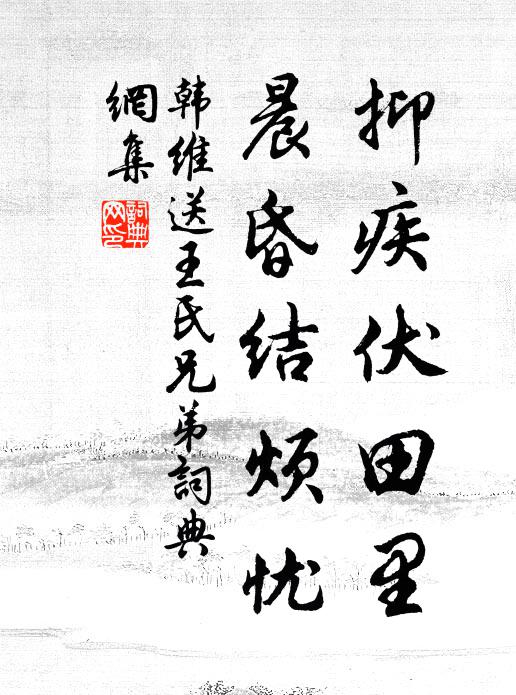 抑疾伏田里
晨昏结烦忧
韩维送王氏兄弟詞典
網集
詞典網印